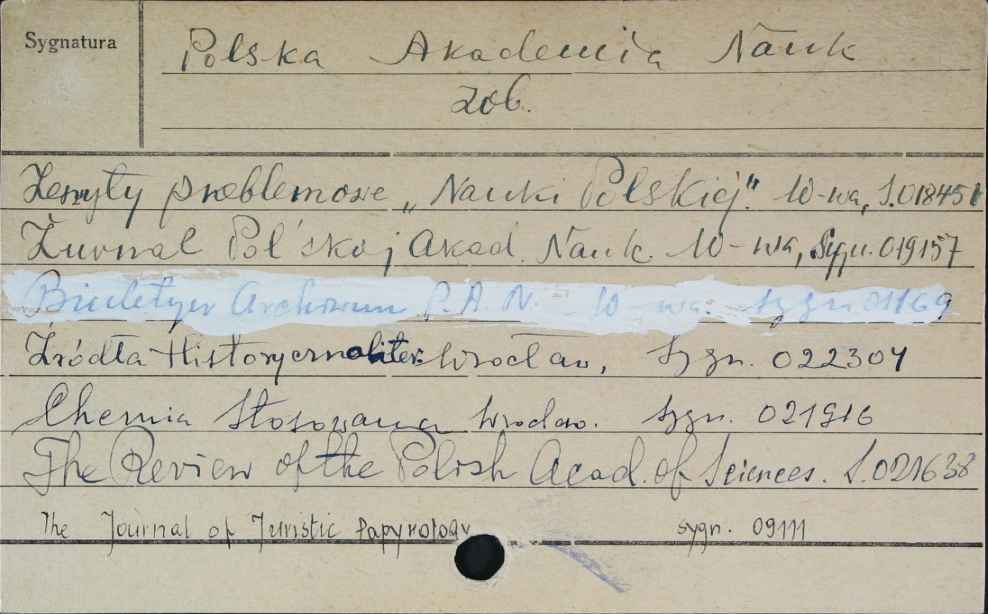 Sygnatura
Polska Akademia Nauk
zob.
Zeszyty problemowe „Nauki Polskiej". W-wa, S.018451
Żurnal Pol'skoj Akad. Nauk. W-wa, Sygn. 019157
Biuletyn Archiwum P.A.N. - W-wa. Sygn 01169
Źródła Historycznoliter. Wrocław, Sygn. 022304
Chemia Stosowana Wrocław. Sygn. 021916
The Review of the Polish Acad. of Sciences. S.021638
The Journal of Juristic Papyrology sygn. 09111